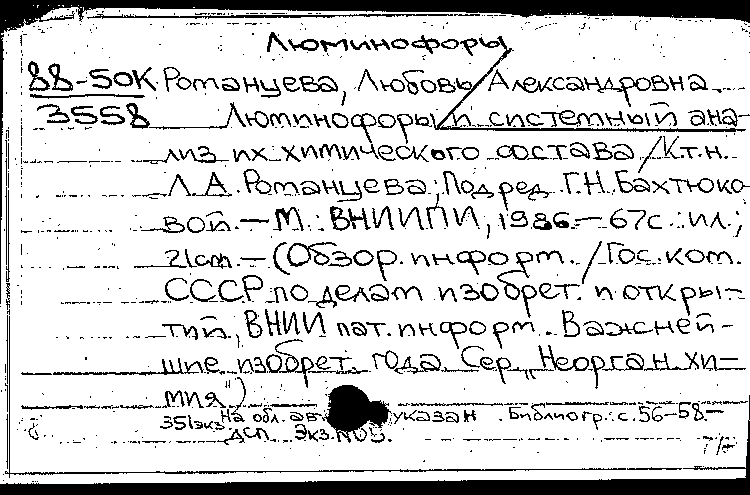 Люминофоры
88-50К Романцева, Любовь Александровна
3558 Люминофоры и системный ана-
лиз их химического состава / К.т.н.
Л.А. Романцева; Под ред. Г.Н. Бахтюко-
вой. — М.: ВНИИПИ, 1986. — 67с.: ил.;
21см. — (Обзор. информ. / Гос. ком.
СССР по делам изобрет. и откры-
тий, ВНИИ пат. информ. Важней-
шие изобрет. года. Сер. „Неорган. хи-
мия")
351экз На обл. авт указан. Библиогр.: с. 56-58.—
ДСП. Экз. №